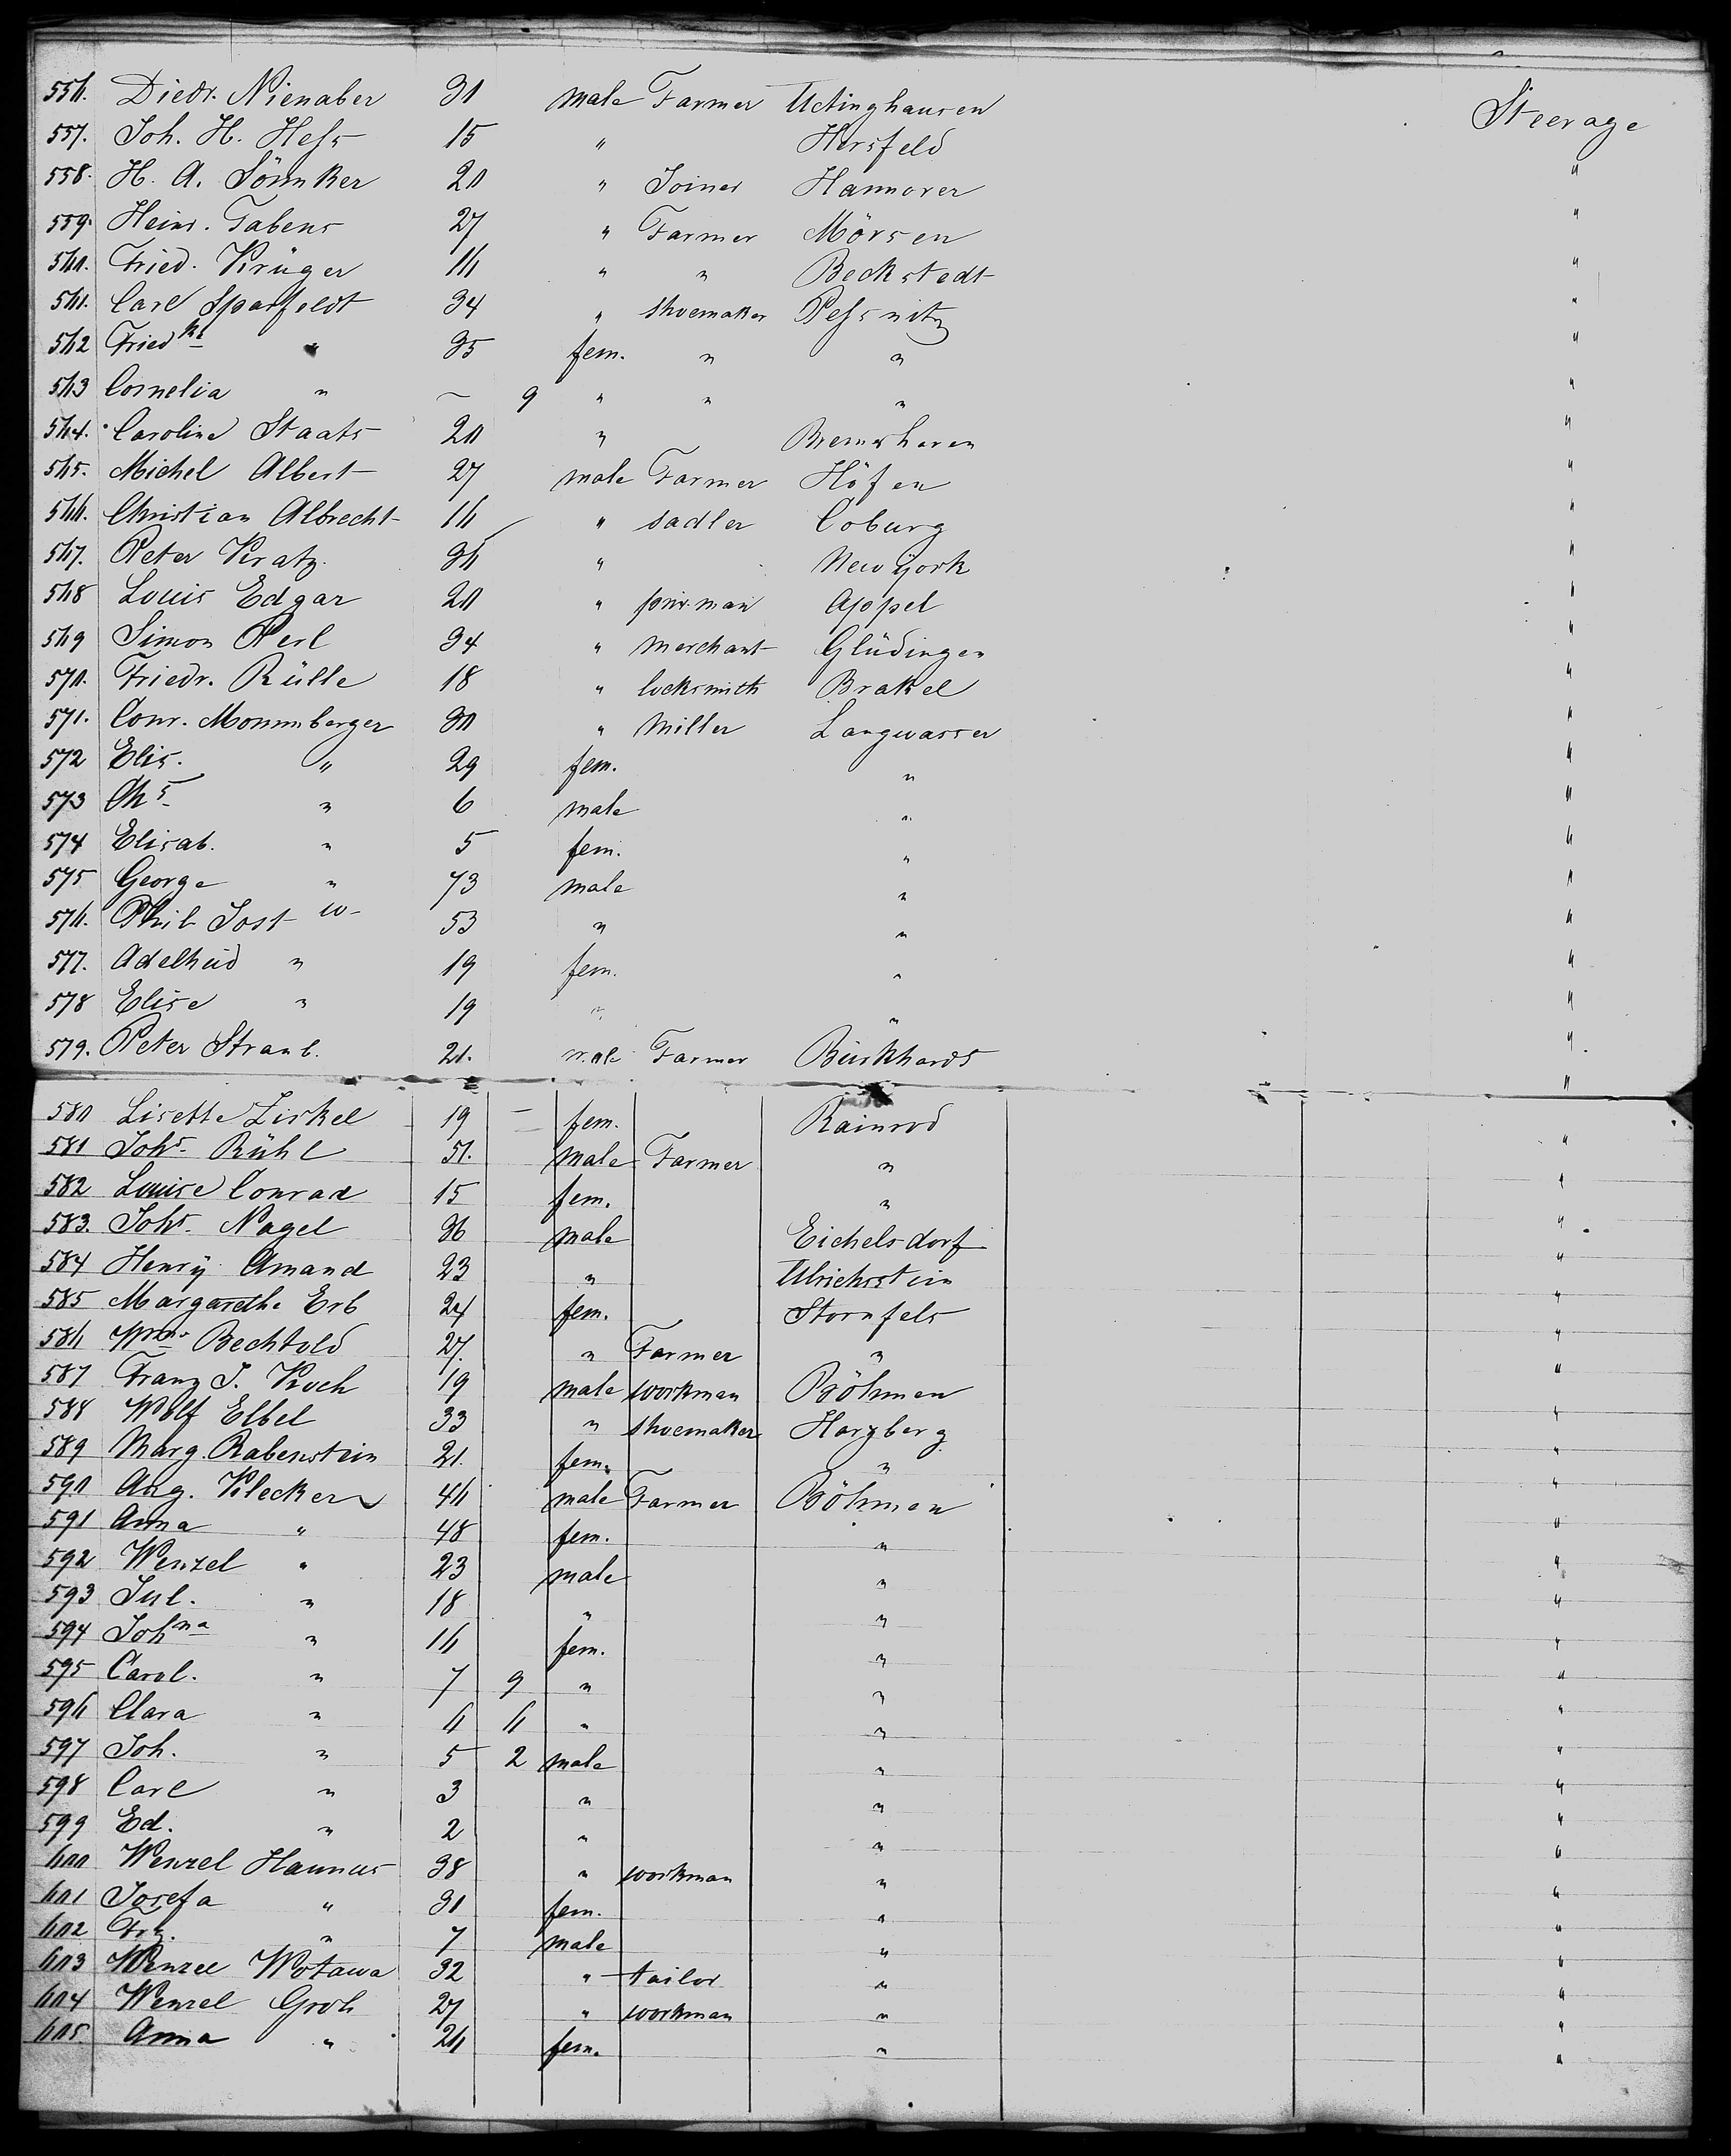 556. Diedr. Nienaber 30 male Farmer Uctinghausen Steerage
557. Joh. H. Heſs 15 " Hersfeld "
558. H. A. Sönnker 20 " Joiner Hannover "
559. Heinr. Tabens 27 " Farmer Mörsen "
560. Fried. Krüger 16 " " Beckstedt "
561. Carl Sparfeldt 34 " shoemaker Peſsnitz "
562 Friedke " 35 fem. " " "
563 Cornelia " — 9 " " " "
564. Caroline Staats 20 " Bremerhaven "
565. Michel Albert 27 male Farmer Höfen "
566. Christian Albrecht 16 " sadler Coburg "
567. Peter Kratz 36 " New york "
568 Louis Edgar 20 " Appel "
569 Simon Perl 34 " merchant Glüdingen "
570. Friedr. Rülle 18 " locksmith Brakel "
571. Conr. Mommberger 30 " Miller Langwasser "
572 Elis. " 29 fem. " "
573 Chs " 6 male " "
574 Elisab. " 5 fem. " "
575 George " 73 male " "
576. Phil Jost 53 " " "
577. Adelheid " 19 fem. " "
578 Elise " 19 " " "
579. Peter Straub. 21. male Farmer Burkhards "
580 Lisette Zirkel 19 — fem. Rainrod "
581 Johs Rühl 51. male Farmer " "
582 Louise Conrad 15 fem. " "
583. Johs Nagel 36 male Eichelsdorf "
584 Henrÿ Amand 23 " Ulrichstein "
585 Margarethe Erb 24 fem. Stornfels "
586 Wme Bechtold 27. " Farmer " "
587 Franz J. Koch 19 male workman Böhmen "
588 Wolf Elbel 33 " shoemaker Harzberg "
589 Marg. Rabenstein 21. fem. " "
590 Aug. Klecker 46 male Farmer Böhmen "
591 Anna " 48 fem. " "
592 Wenzel " 23 male " "
593 Jul. " 18 " " "
594 Johna " 16 fem. " "
595 Carol. " 7 9 " " "
596 Clara " 6 6 " " "
597 Joh. " 5 2 male " "
598 Carl " 3 " " "
599 Ed. " 2 " " "
600 Wenzel Hannus 38 " workman " "
601 Josefa " 30 fem. " "
602 Frz. " 7 male " "
603 Wenzel Wotawa 32 " tailor " "
604 Wenzel Groh 27 " workman " "
605. Anna " 26 fem. " "